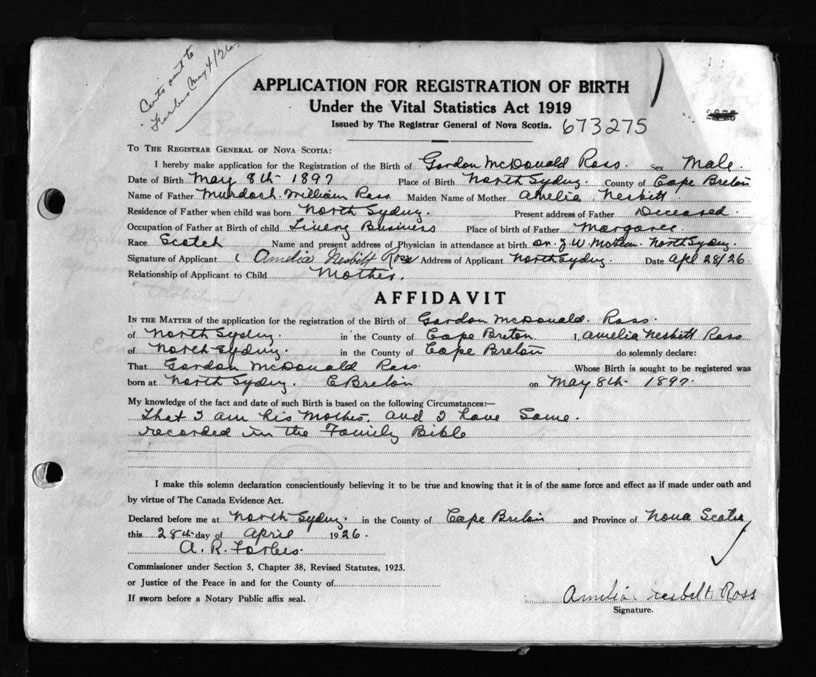 Certs sent to
Forbes May 4/26
APPLICATION FOR REGISTRATION OF BIRTH
Under the Vital Statistics Act 1919
Issued by The Registrar General of Nova Scotia. 673275
TO THE REGISTRAR GENERAL OF NOVA SCOTIA:
I hereby make application for the Registration of the Birth of Gordon McDonald Ross. Sex Male.
Date of Birth May 8th 1897 Place of Birth North Sydney. County of Cape Breton
Name of Father Murdoch William Ross Maiden Name of Mother Amelia Nesbitt
Residence of Father when child was born North Sydney. Present address of Father Deceased.
Occupation of Father at Birth of child Livery Business Place of birth of Father Margaree.
Race Scotch Name and present address of Physician in attendance at birth Dr. J W McLean. North Sydney.
Signature of Applicant ( Amelia Nesbitt Ross Address of Applicant North Sydney. Date Apl 28/26.
Relationship of Applicant to Child Mother.
AFFIDAVIT
IN THE MATTER of the application for the registration of the Birth of Gordon McDonald. Ross.
of North Sydney. in the County of Cape Breton I, Amelia Nesbitt Ross
of North Sydney. in the County of Cape Breton do solemnly declare:
That Gordon McDonald Ross. Whose Birth is sought to be registered was
born at North Sydney. C Breton on May 8th 1897.
My knowledge of the fact and date of such Birth is based on the following Circumstances:—
That I am his Mother. and I have Same.
recorded in the Family Bible
I make this solemn declaration conscientiously believing it to be true and knowing that it is of the same force and effect as if made under oath and
by virtue of The Canada Evidence Act.
Declared before me at North Sydney. in the County of Cape Breton and Province of Nova Scotia
this 28th day of April 1926.
A. R. Forbes.
Commissioner under Section 5, Chapter 38, Revised Statutes, 1923.
or Justice of the Peace in and for the County of
If sworn before a Notary Public affix seal.
Amelia Nesbitt Ross
Signature.